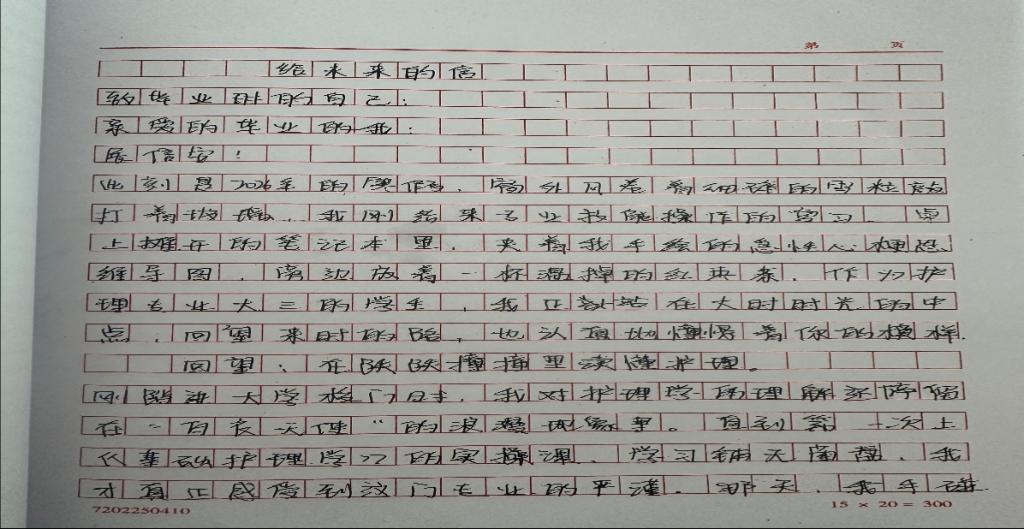 第 页
给未来的信
致毕业时的自己:
亲爱的毕业的我:
展信安!
此刻是2026年的寒假,窗外风卷着细碎的雪粒敲
打着玻璃,我刚结束专业技能操作的复习,桌
上摊开的笔记本里,夹着我手绘的急性心梗思
维导图,旁边放着一杯温热的红枣茶,作为护
理专业大三的学生,我正站在大时时光的中
点,回望来时的路,也认真地憧憬着你的模样.
回望:在跌跌撞撞里读懂护理。
刚踏进大学校门时,我对护理学的理解还停留
在“白衣天使”的浪漫想象里。直到第一次上
基础护理学的实操课,学习铺无菌盘,我
才真正感受到这门专业的严谨.那天,我手
7202250410 15 × 20 = 300